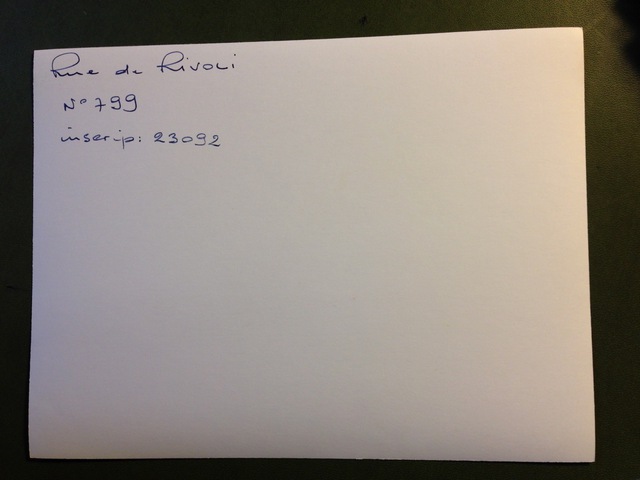 Rue de Rivoli
N° 799
inscrip: 23092